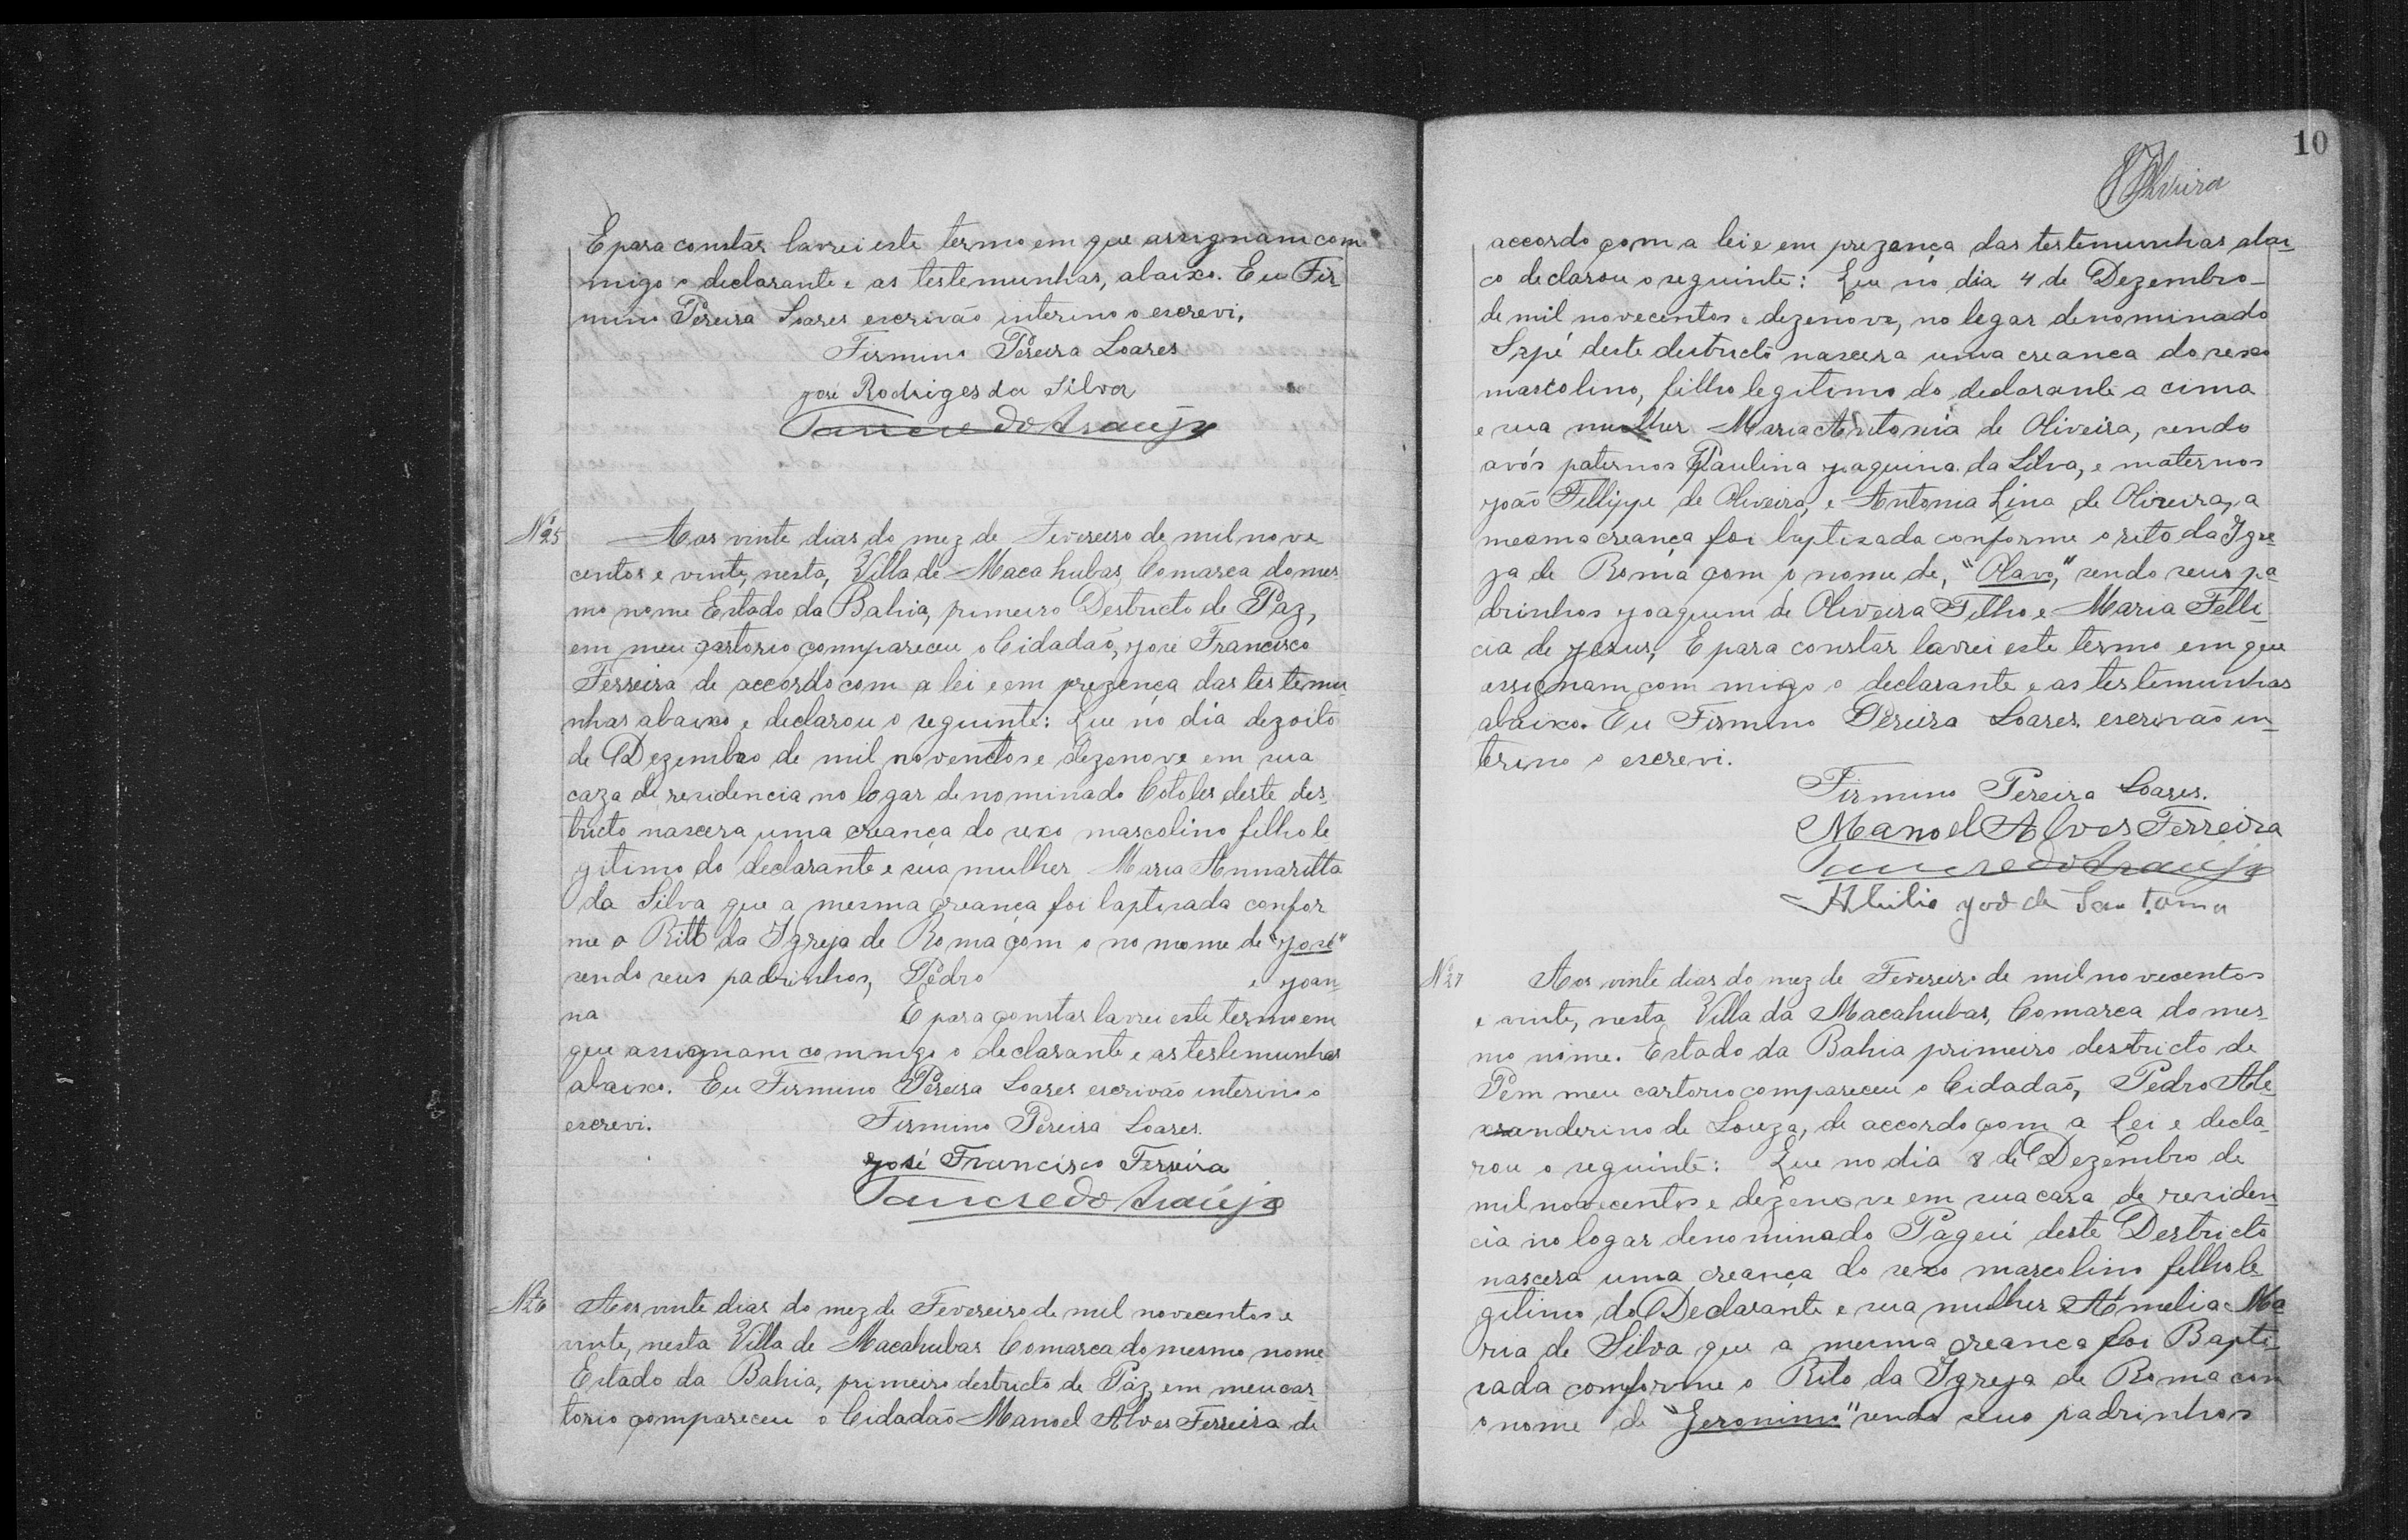 E para constar lavrei este termo em que assignam com
migo o declarante e as testemunhas, abaixo. Eu Fir
mino Pereira Soares escrivão interino o escrevi.
Firmino Pereira Soares
José Rodriges da Silva
Tancredo Araujo
Nº 25
Aos vinte dias do mez de Fevereiro de mil nove
centos e vinte, nesta, Villa de Macahubas, Comarca do mes
mo nome Estado da Bahia, primeiro Destricto de Paz,
em meu cartorio compareceu o Cidadão, José Francisco
Ferreira de accordo com a lei e em prezença das testemu
nhas abaixo e declarou o seguinte: Que no dia dezoito
de Dezembro de mil noventos e dezenove em sua
caza de residencia no logar denominado Cotoles deste des
tricto nascera uma creança do sexo mascolino filho le
gitimo do declarante e sua mulher Maria Annaritta
da Silva que a mesma creança foi baptisada confor
me o Ritto da Igreja de Roma com o no mome de "José"
sendo seus padrinhos, Pedro e Joan-
na E para constar lavrei este termo em
que assignam commigo o declarante e as testemunhas
abaixo. Eu Firmino Pereira Soares escrivão interino o
escrevi. Firmino Pereira Soares.
José Francisco Ferreira
Tancredo Araujo
Nº 26
Aos vinte dias do mez de Fevereiro de mil novecentos e
vinte, nesta Villa de Macahubas Comarca do mesmo nome
Estado da Bahia, primeiro destricto de Paz, em meu car
torio compareceu o Cidadão Manoel Alves Ferreira de
10
Oliveira
accordo com a lei e em prezença das testemunhas abai-
co declarou o seguinte: Que no dia 4 de Dezembro
de mil novecentos e dezenove, no legar denominado
Sapé deste destricto nascera uma creanca do sexo
mascolino, filho legitimo do declarante a cima
e sua mulher Maria Antonia de Oliveira, sendo
avós paternos Paulina Joaquina da Silva, e maternos
João Fellippe de Oliveira, e Antonia Lina de Oliveira, a
mesma creança foi baptisada conforme o rito da Igre-
ja de Roma com o nome de, "Olavo," sendo seus pa-
drinhos Joaquim de Oliveira Filho e Maria Felli-
cia de Jesus, E para constar lavrei este termo em que
assignam com migo o declarante e as testemunhas
abaixo. Eu Firmino Pereira Soares escrivão in-
terino o escrevi.
Firmino Pereira Soares.
Manoel Alves Ferreira
Tancredo Araujo
Abilio José de Santana
Nº 27
Aos vinte dias do mez de Fevereiro de mil novecentos
e vinte, nesta Villa da Macahubas, Comarca do mes-
mo nome. Estado da Bahia primeiro destricto de
Pem meu cartorio compareceu o Cidadaõ, Pedro Ale-
xanderino de Souza, de accordo com a Lei e decla-
rou o seguinte: Que no dia 8 de Dezembro de
mil novecentos e dezenove em sua casa de residen
cia no logar denominado Pageú deste Destricto
nascera uma creança do sexo mascolino filho le
gitimo do Declarante e sua mulher Amelia Ma
ria de Silva que a mesma creança foi Bapti-
sada comforme o Rito da Igreja de Roma com
o nome de "Jeronimo" sendo seus padrinhos